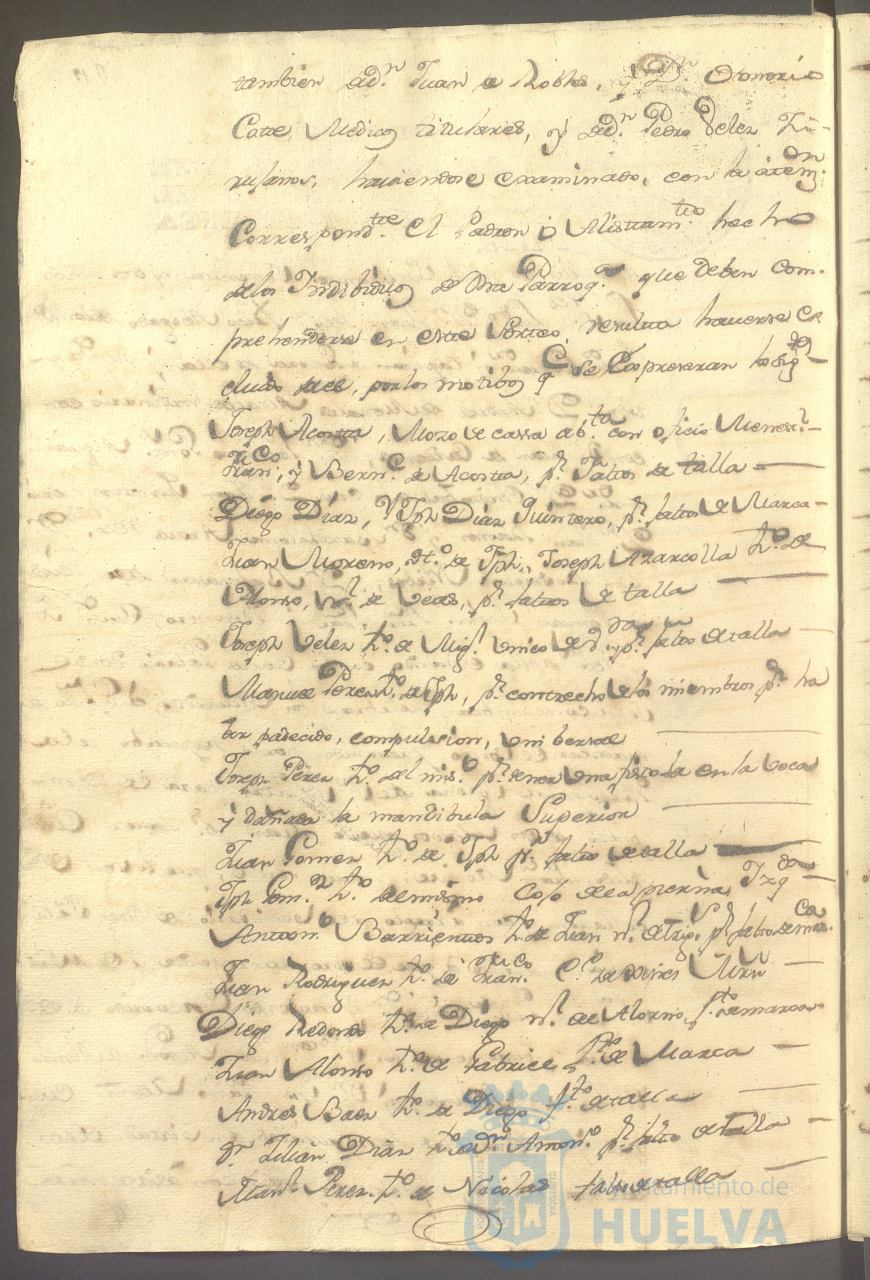 tambien a Dn. Juan de Robles, y Dn. Honorio
Catte, Medicos titulares, y a Dn. Pedro Velez Zi-
rujanos, haviendose examinado, con la atenzn.
Correspondte. el Padron o Alistamto. hecho
delos Indibiduos de dha Parroqa. que deben com-
prehenderse en este Sorteo resulta haverse ex
cluido de el, por los motibos qe. se Expresaran los sigtes.
Joseph Acosta, Mozo de cassa abta. con oficio Menestrl.
Juan, y Bernc. de Acosta, pr. faltos de talla
Diego Diaz, y Jph Diaz Quintero, pr. faltos de Marca
Juan Moreno, de Jph, Joseph Azarcolla ho. de
Alonso, nl. de Veas, pr. faltos de talla
Joseph Velez ho. de Migl. unico de pr. falto de talla
Manuel Perez ho. de Jph, pr. contrecho delos miembros pr. ha
ber padecido, compulsion, universal
Joseph Perez ho. del mismo pr. tener una fistola en la voca
y dañada la mandibula Superior
Juan Gomez ho. de Jph pr. falto de talla
Jph Gomz. ho. del mismo Cojo de la pierna Izqda.
Antono. Barrientos ho. de Juan nl. de Trigs. pr. falto de marca.
Juan Rodriguez ho. de Franco.
Diego Redondo ho. de Diego nl. de Alosno, fto. de marca
Juan Alonso ho. de Gabriel fto. de Marca
Andres Baez ho. de Diego fto. de talla
Dn. Julian Diaz ho. de Dn. Antono. pr. falto de talla
Manl. Perez ho. de Nicolas falto de talla
Ayuntamiento de
HUELVA